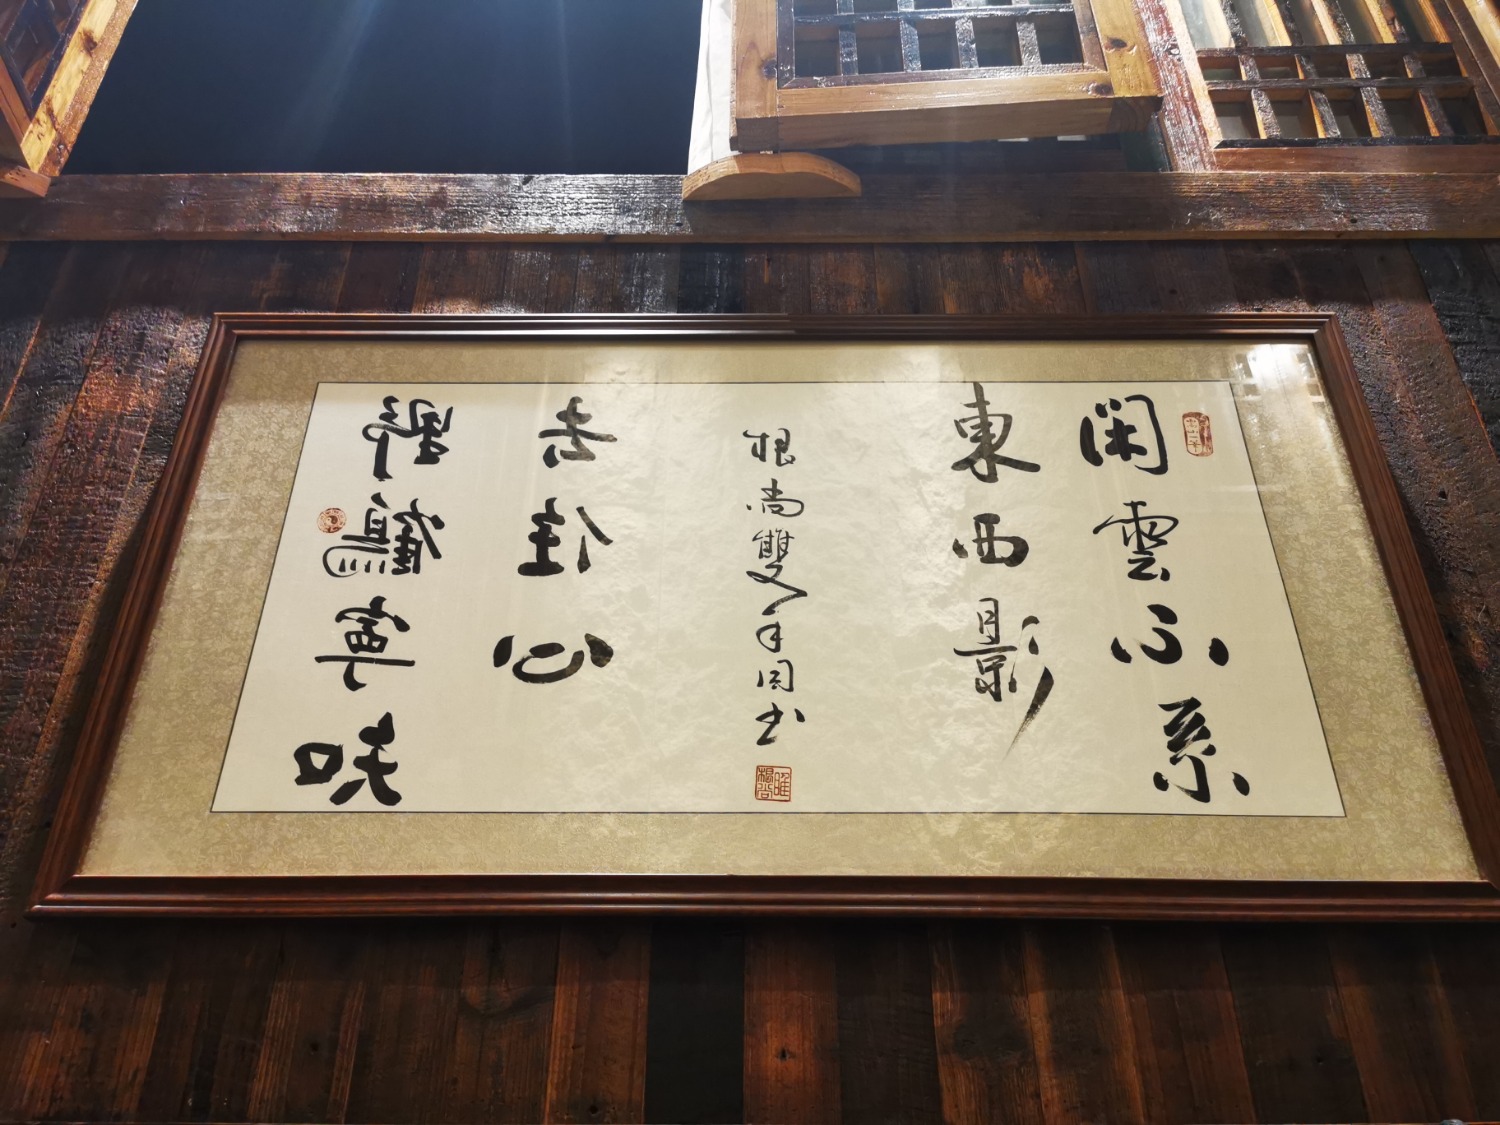 閑雲不系
東西影
野鶴寧知
去住心
根尚雙手同书